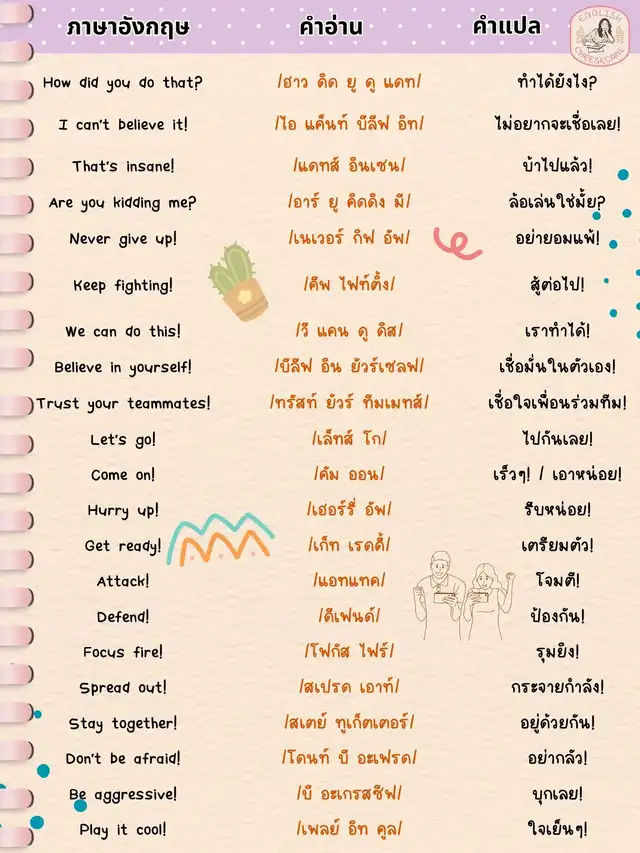 ภาษาอังกฤษ คำอ่าน คำแปล
ENGLISH
CHEESECAKE
How did you do that? /ฮาว ดิด ยู ดู แดท/ ทำได้ยังไง?
I can't believe it! /ไอ แค็นท์ บีลีฟ อิท/ ไม่อยากจะเชื่อเลย!
That's insane! /แดทส์ อินเซน/ บ้าไปแล้ว!
Are you kidding me? /อาร์ ยู คิดดิง มี/ ล้อเล่นใช่มั้ย?
Never give up! /เนเวอร์ กิฟ อัพ/ อย่ายอมแพ้!
Keep fighting! /คีพ ไฟท์ติ้ง/ สู้ต่อไป!
We can do this! /วี แคน ดู ดิส/ เราทำได้!
Believe in yourself! /บีลีฟ อิน ยัวร์เซลฟ/ เชื่อมั่นในตัวเอง!
Trust your teammates! /ทรัสท์ ยัวร์ ทีมเมทส์/ เชื่อใจเพื่อนร่วมทีม!
Let's go! /เล็ทส์ โก/ ไปกันเลย!
Come on! /คัม ออน/ เร็วๆ! / เอาหน่อย!
Hurry up! /เฮอร์รี่ อัพ/ รีบหน่อย!
Get ready! /เก็ท เรดดี้/ เตรียมตัว!
Attack! /แอทแทค/ โจมตี!
Defend! /ดีเฟนด์/ ป้องกัน!
Focus fire! /โฟกัส ไฟร์/ รุมยิง!
Spread out! /สเปรด เอาท์/ กระจายกำลัง!
Stay together! /สเตย์ ทูเก็ตเตอร์/ อยู่ด้วยกัน!
Don't be afraid! /โดนท์ บี อะเฟรด/ อย่ากลัว!
Be aggressive! /บี อะเกรสซีฟ/ บุกเลย!
Play it cool! /เพลย์ อิท คูล/ ใจเย็นๆ!